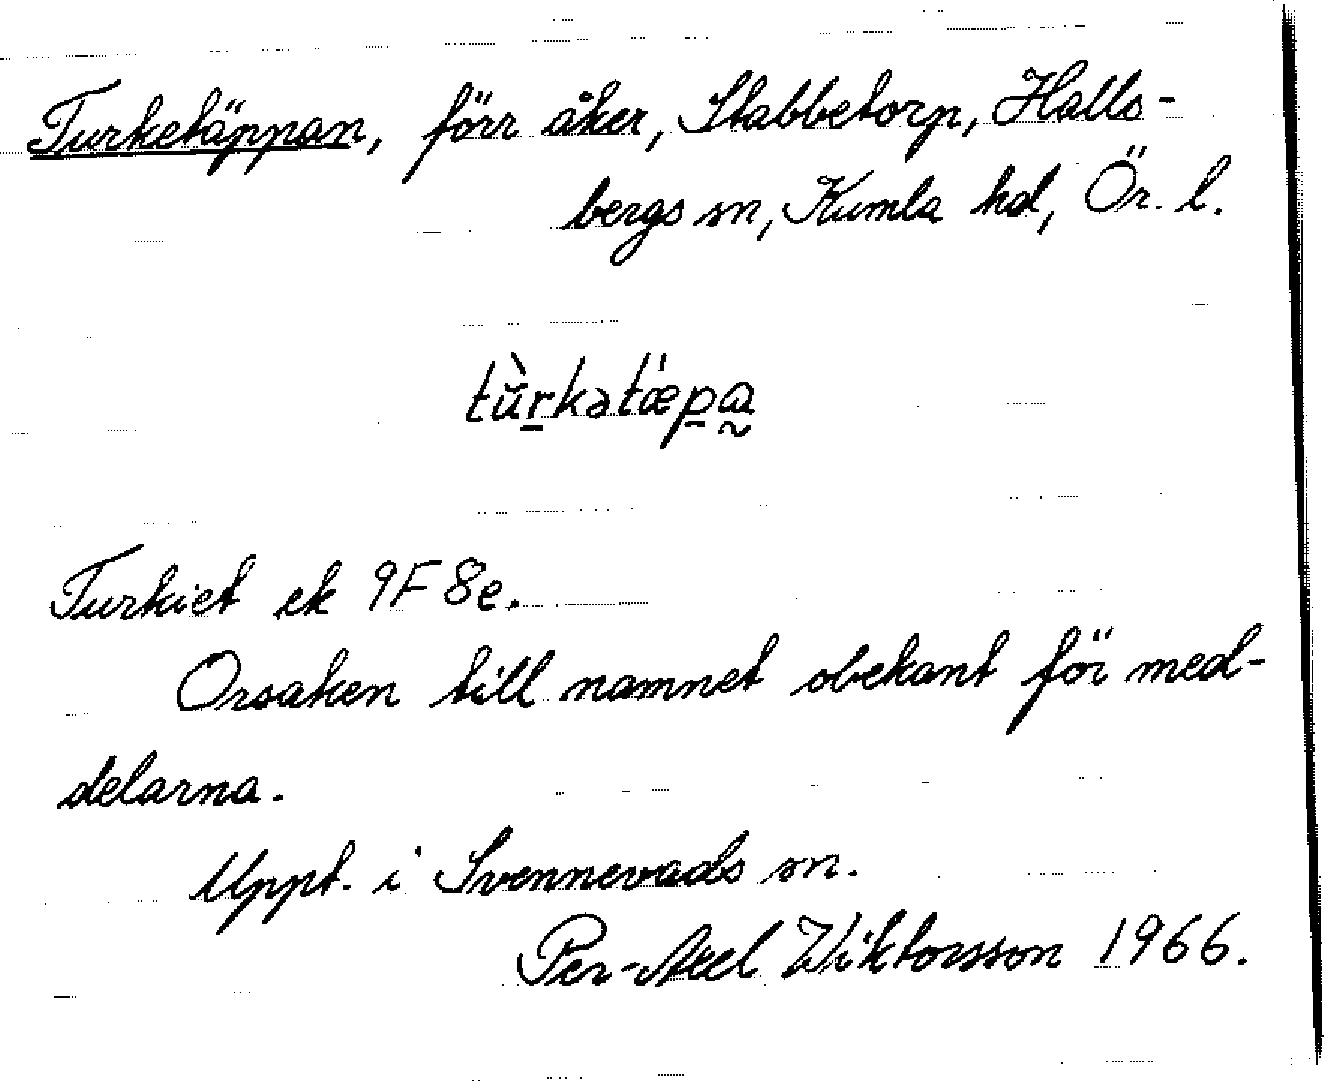 Turketäppan, förr åker, Stabbetorp, Halls-
bergs sn, Kumla hd, Ör. l.
tù̆r̠kətæ̍p̠a̰
Turkiet ek 9F 8e.
Orsaken till namnet obekant för med-
delarna.
Uppt. i Svennevads sn.
Per-Axel Wiktorsson 1966.